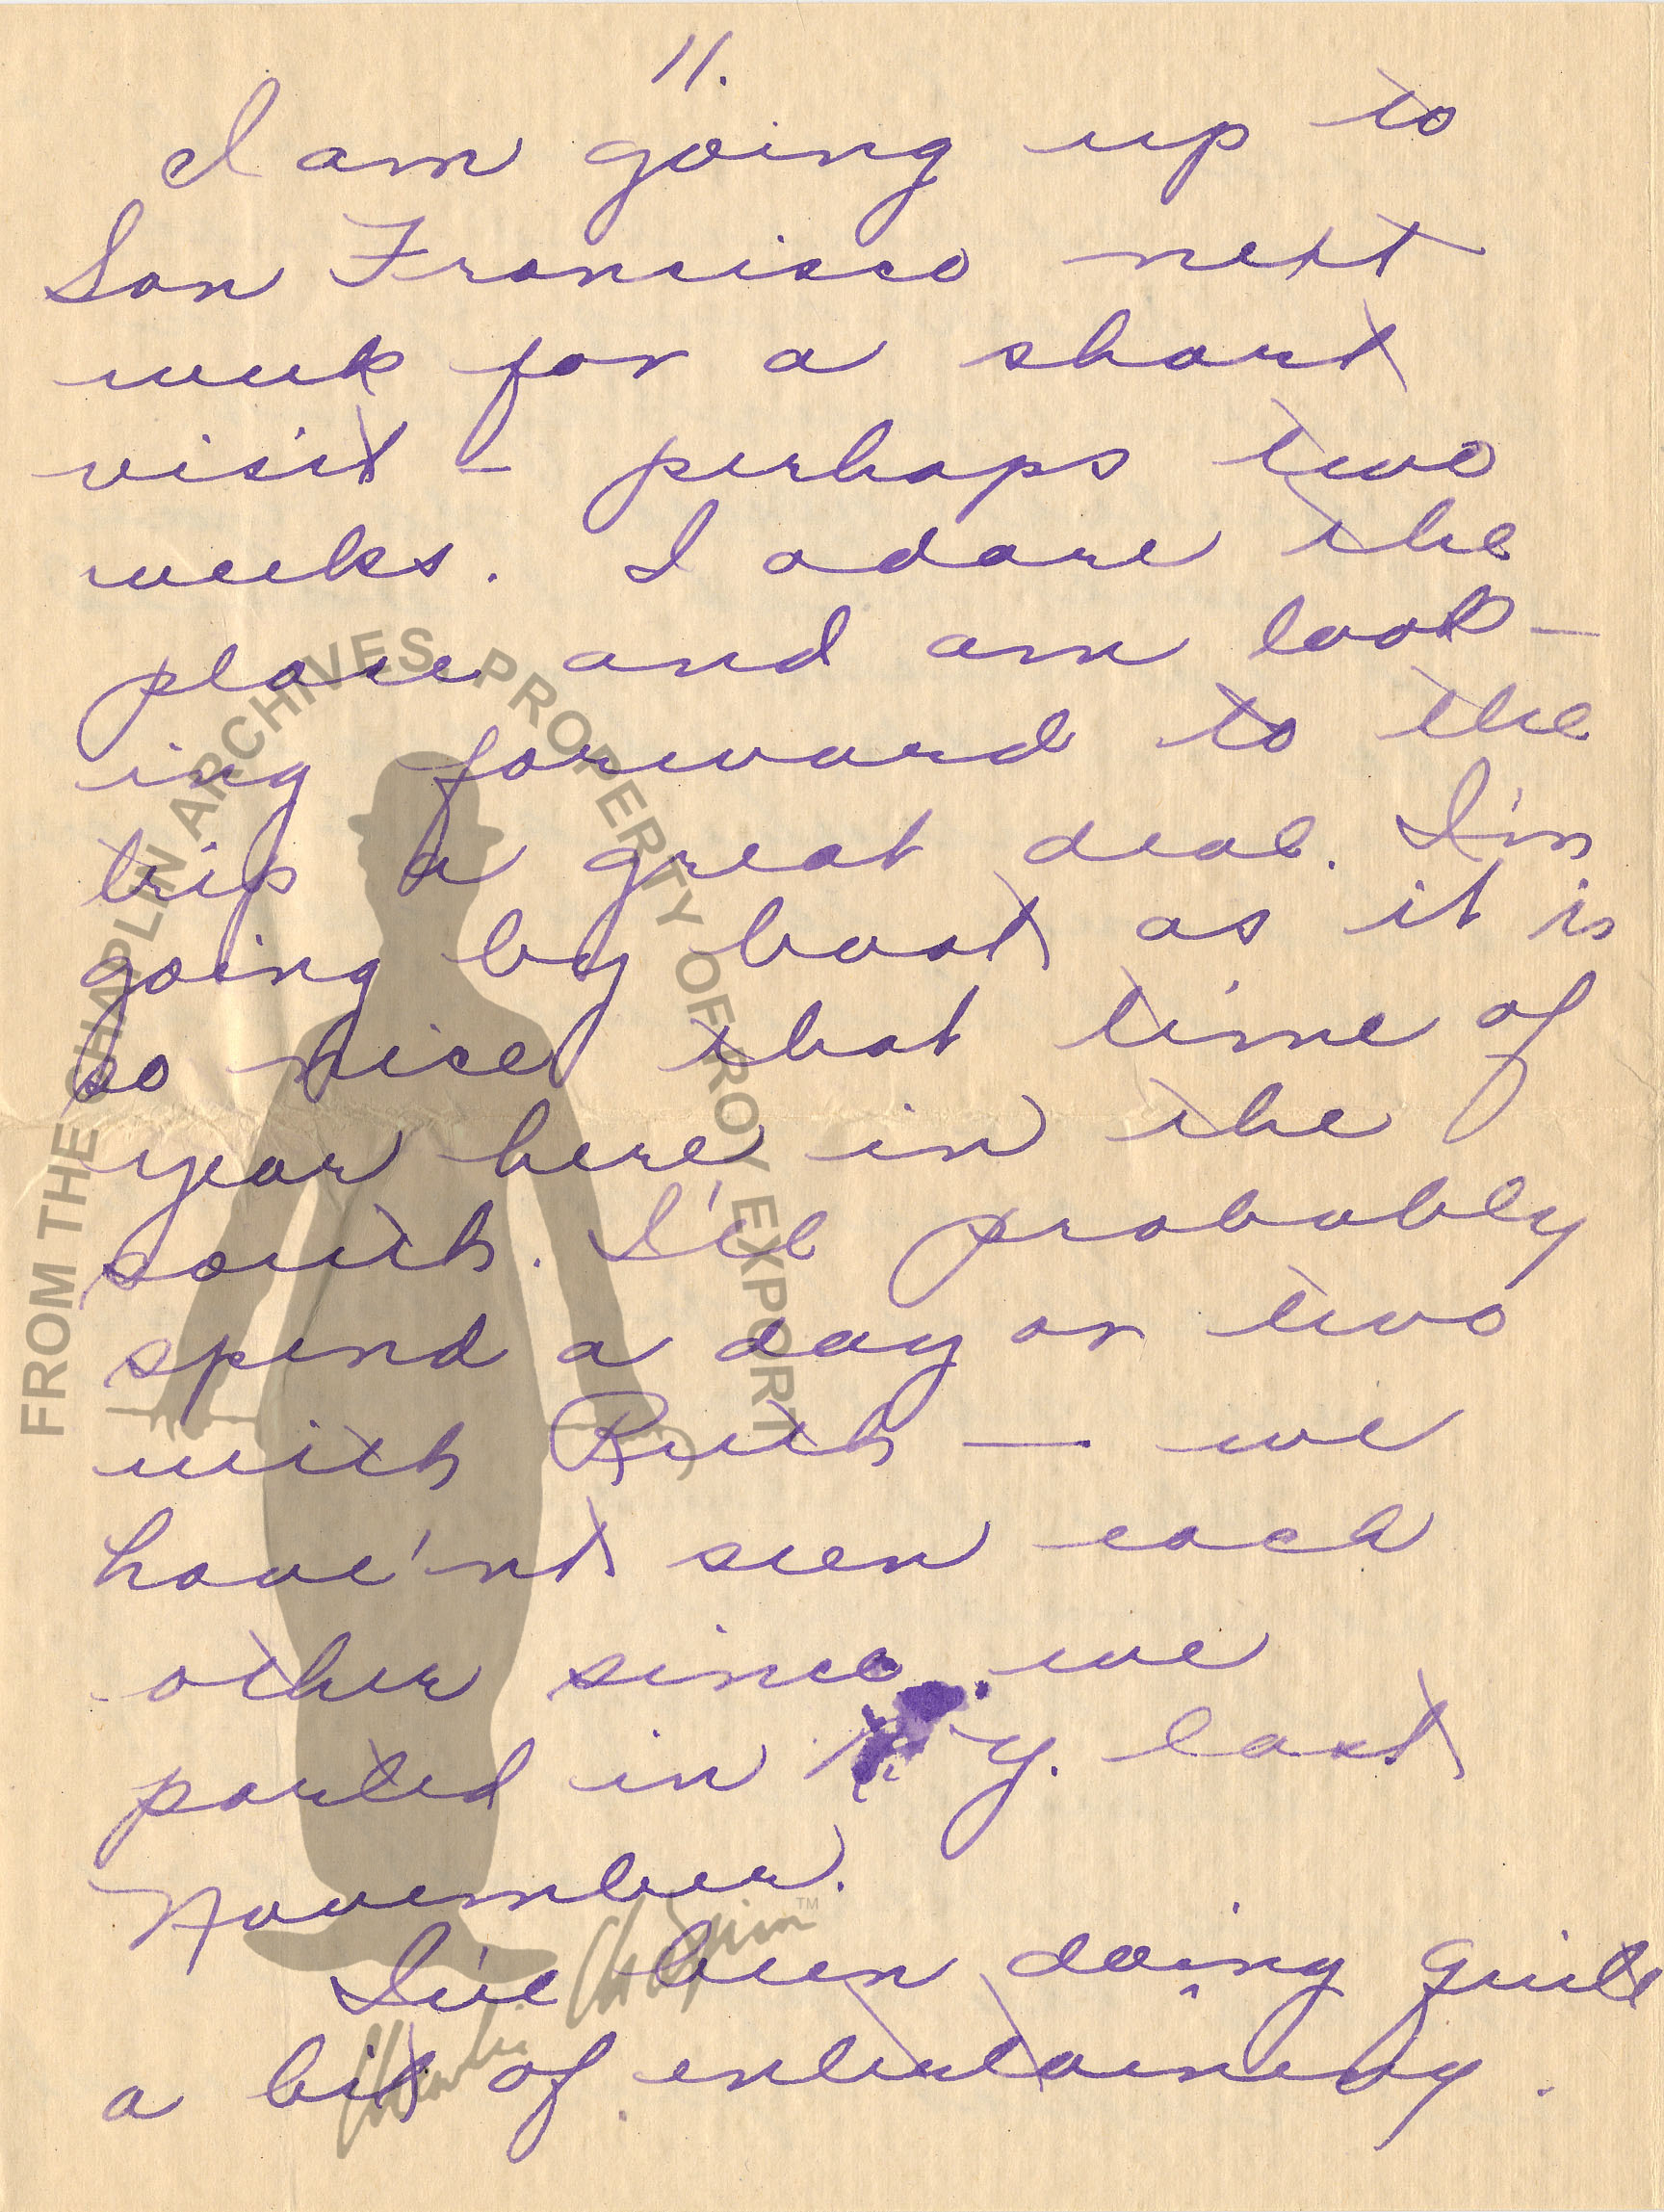 11.
I am going up to
San Francisco next
week for a short
visit - perhaps two
weeks. I adore the
place and am look-
ing forward to the
trip a great deal. I'm
going by boat as it is
so nice that time of
year here in the
south. I'll probably
spend a day or two
with Ruth — we
have'nt seen each
other since we
parted in N.Y. last
November.
I've been doing quite
a bit of entertaining.
FROM THE CHAPLIN ARCHIVES PROPERTY OF ROY EXPORT
Charlie Chaplin™